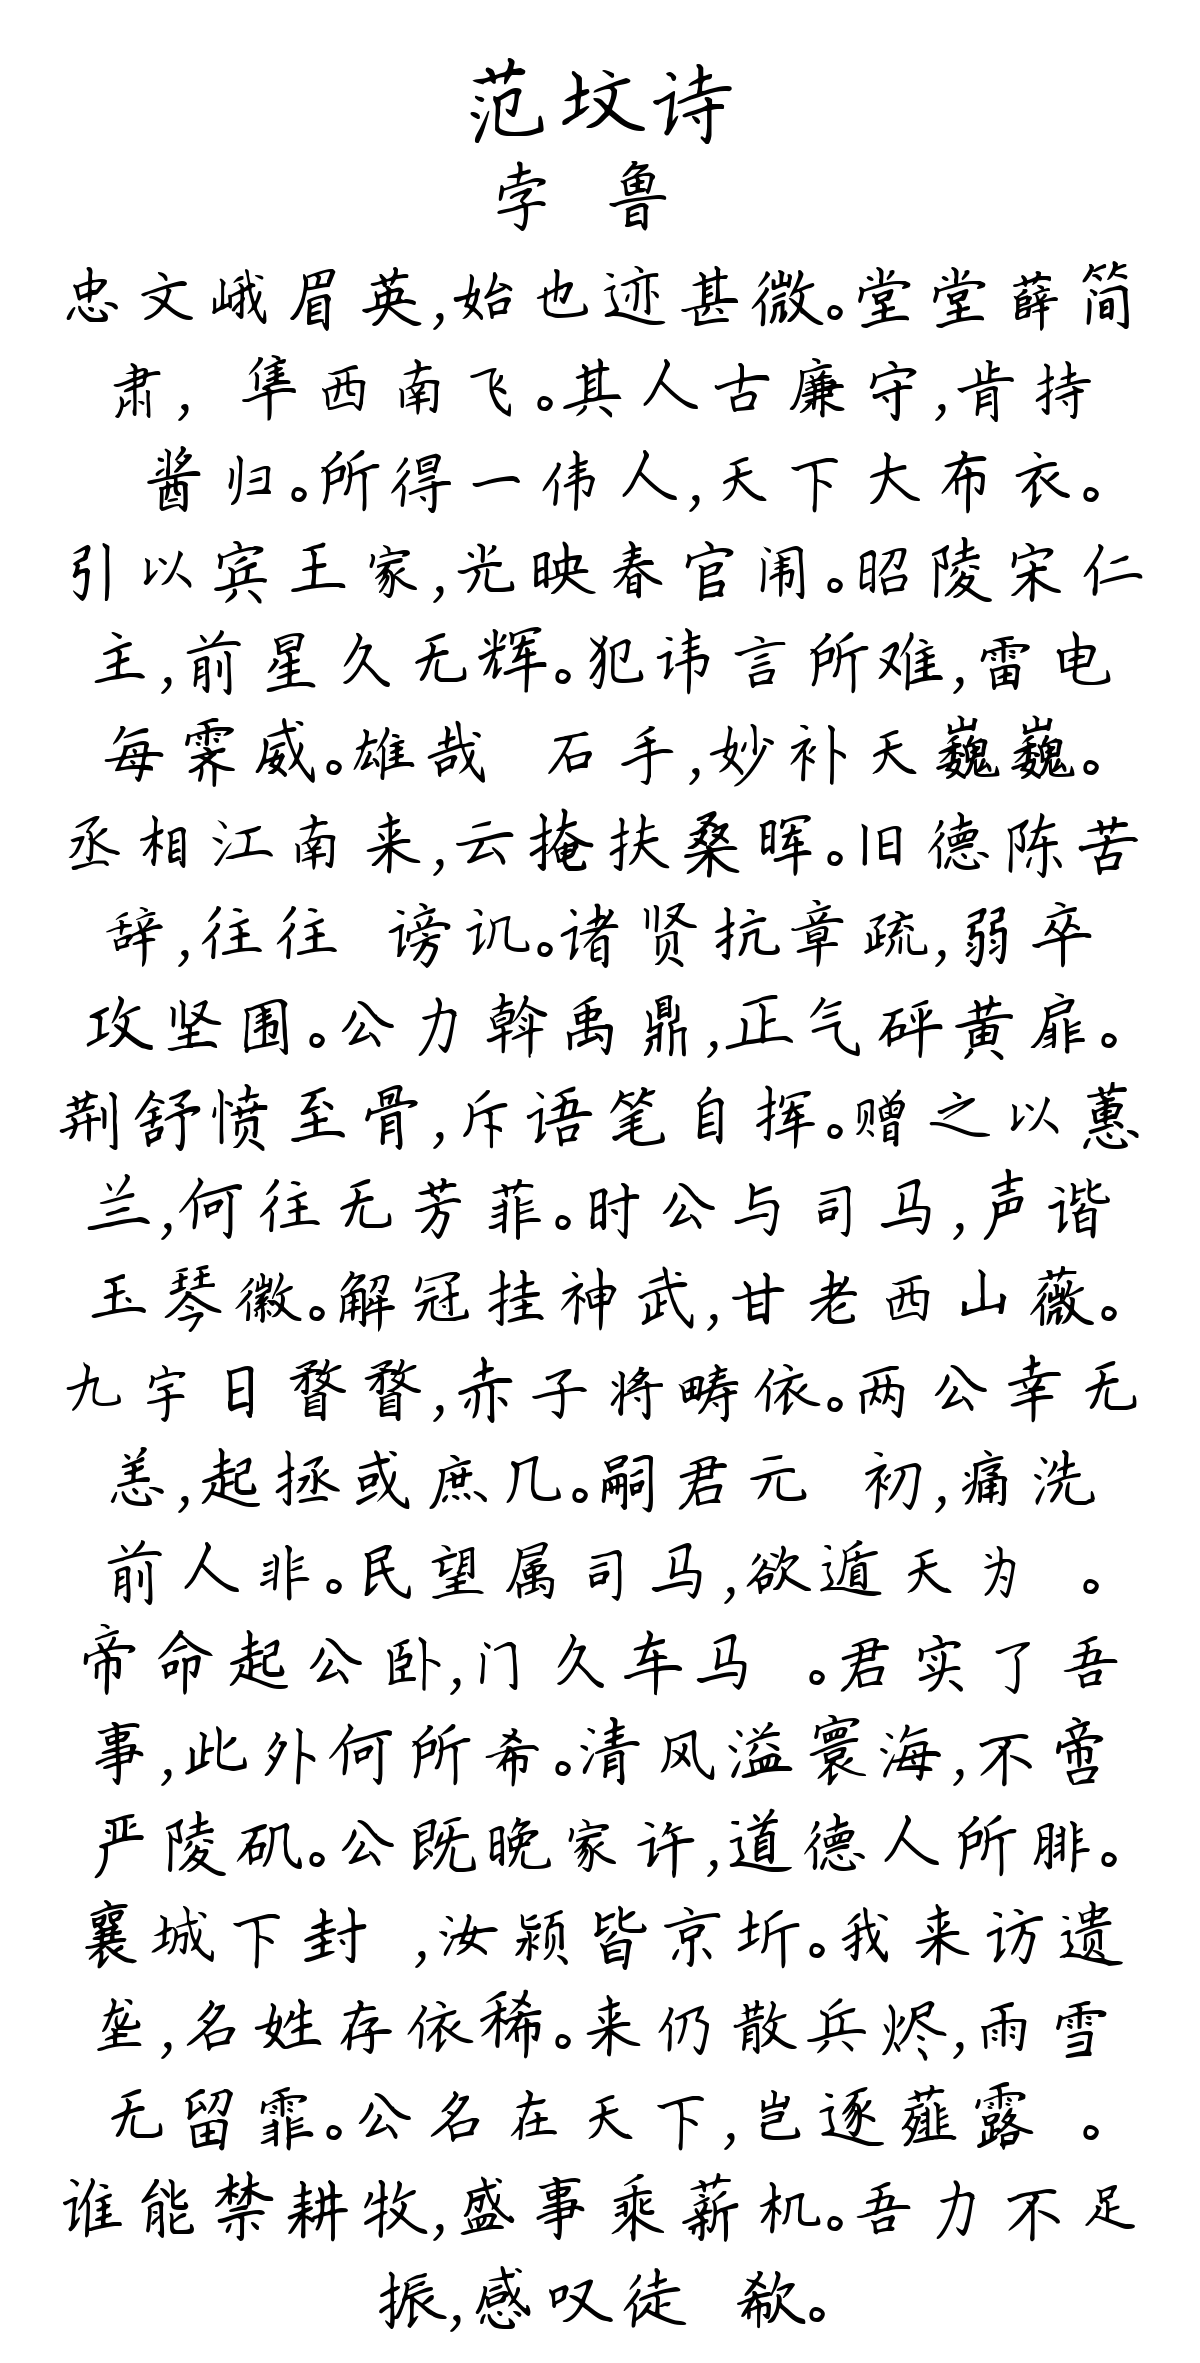 范坟诗
孛 鲁
忠文峨眉英,始也迹甚微。堂堂薛简
肃, 隼西南飞。其人古廉守,肯持
酱归。所得一伟人,天下大布衣。
引以宾王家,光映春官闱。昭陵宋仁
主,前星久无辉。犯讳言所难,雷电
每霁威。雄哉 石手,妙补天巍巍。
丞相江南来,云掩扶桑晖。旧德陈苦
辞,往往 谤讥。诸贤抗章疏,弱卒
攻坚围。公力斡禹鼎,正气砰黄扉。
荆舒愤至骨,斥语笔自挥。赠之以蕙
兰,何往无芳菲。时公与司马,声谐
玉琴徽。解冠挂神武,甘老西山薇。
九宇日瞀瞀,赤子将畴依。两公幸无
恙,起拯或庶几。嗣君元 初,痛洗
前人非。民望属司马,欲遁天为 。
帝命起公卧,门久车马 。君实了吾
事,此外何所希。清风溢寰海,不啻
严陵矶。公既晚家许,道德人所腓。
襄城下封 ,汝颍皆京圻。我来访遗
垄,名姓存依稀。来仍散兵烬,雨雪
无留霏。公名在天下,岂逐薤露 。
谁能禁耕牧,盛事乘薪机。吾力不足
振,感叹徒 欷。